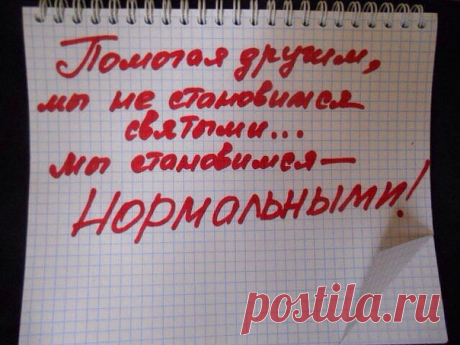 Помогая другим,
мы не становимся
святыми...
мы становимся—
НОРМАЛЬНЫМИ!
postila.ru